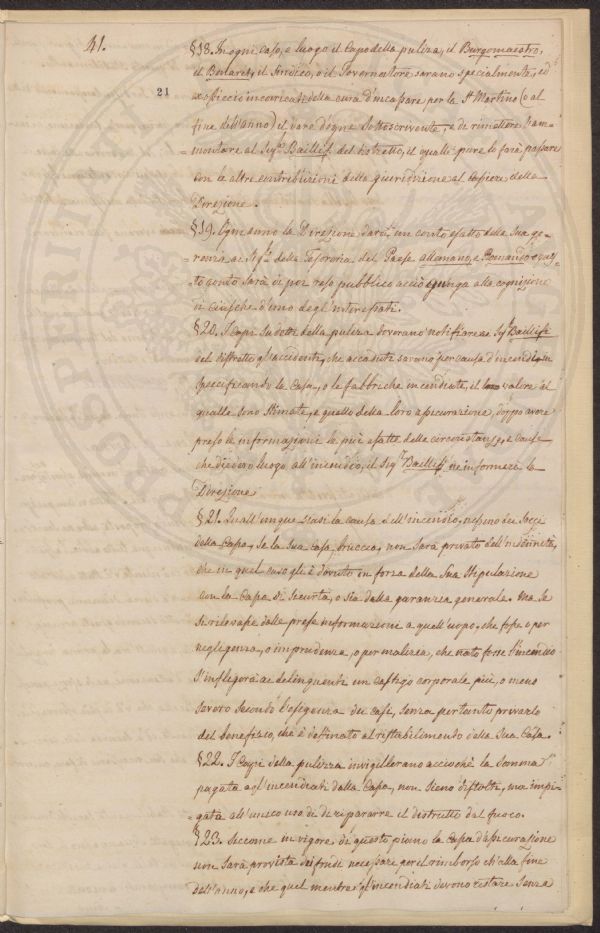 41.
21
§18. In ogni caso, e luogo il Capo della pulizia, il Burgomaestro,
il Benaret, il Sindico, o il Governatore sarano specialmente, ed
ex officcio incaricati della cura d'incassare per la St Martino (o al
fine dell'anno) il dare d'ogne sottoscrivente, e de rimettere l'am-
=montare al Sigr Baillif del distretto, il qualle pure lo farà passare
con le altre contribuzioni della giurisdizione al Cassiere della
Direzione.
§19. Ogni anno la Direzione darà un conto esatto della sua ge-
=renza ai Sigri della Tesoreria del Paese allemano, e Romando e ques-
=to conto sarà di poi reso pubblico acciò giunga alla cognizione
di ciasched'uno degl'interessati.
§20. I Capi sudetti della pulizia doverano notifiare ai Sigri Baillifs
del distretto gl'accidenti, che accaduti sarano per causa d'incendi, in
specificando la casa, o le fabbriche incendiate, il valore al
qualle sono stimate, e quello della loro assicurazione, doppo avere
preso le informazioni le più esatte delle circonstanze, e cause
che diedero luogo all'incendio, il Sigr Baillif ne informerà la
Direzione
§21. Quall'unque siasi la causa dell'incendio, nessuno dei Socci
della Cassa, se la sua casa bruccia, non sarà privato dell'indennità,
che in quel caso gli è dovuto in forza della sua stipulazione
con la Cassa di securtà, o sia della garanzia generale. Ma se
si rilevasse dalle prese informazioni a quell'uopo, che fosse o per
neglegenza, o imprudenza, o per malizia, che nato forse l'incendio
s'infligerà ai delinquenti un castigo corporale più, o meno
severo secondo l'esegenza dei casi, senza pertanto privarlo
del benefizio, che è destinato al ristabilimento della sua Casa.
§22. I Capi della pulizia invigillerano acciochè la somma
pagata agl'incendiati dalla Cassa, non sieno distolte, ma impi-
=gata all'unico uso di di riparare il distrutto dal fuoco.
§23. Siccome in vigore di questo piano la Cassa d'assicurazione
non sarà provista dei fondi necessari per il rimborso ch'alla fine
dell'anno, e che quel mentre gl'incendiati devono restare senza